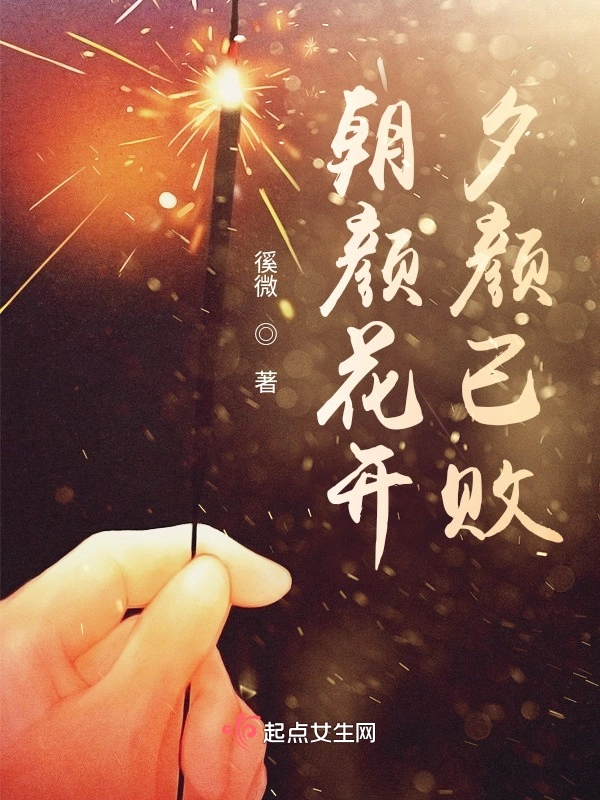 夕颜已败
朝颜花开
徯微 ◎ 著
起点女生网